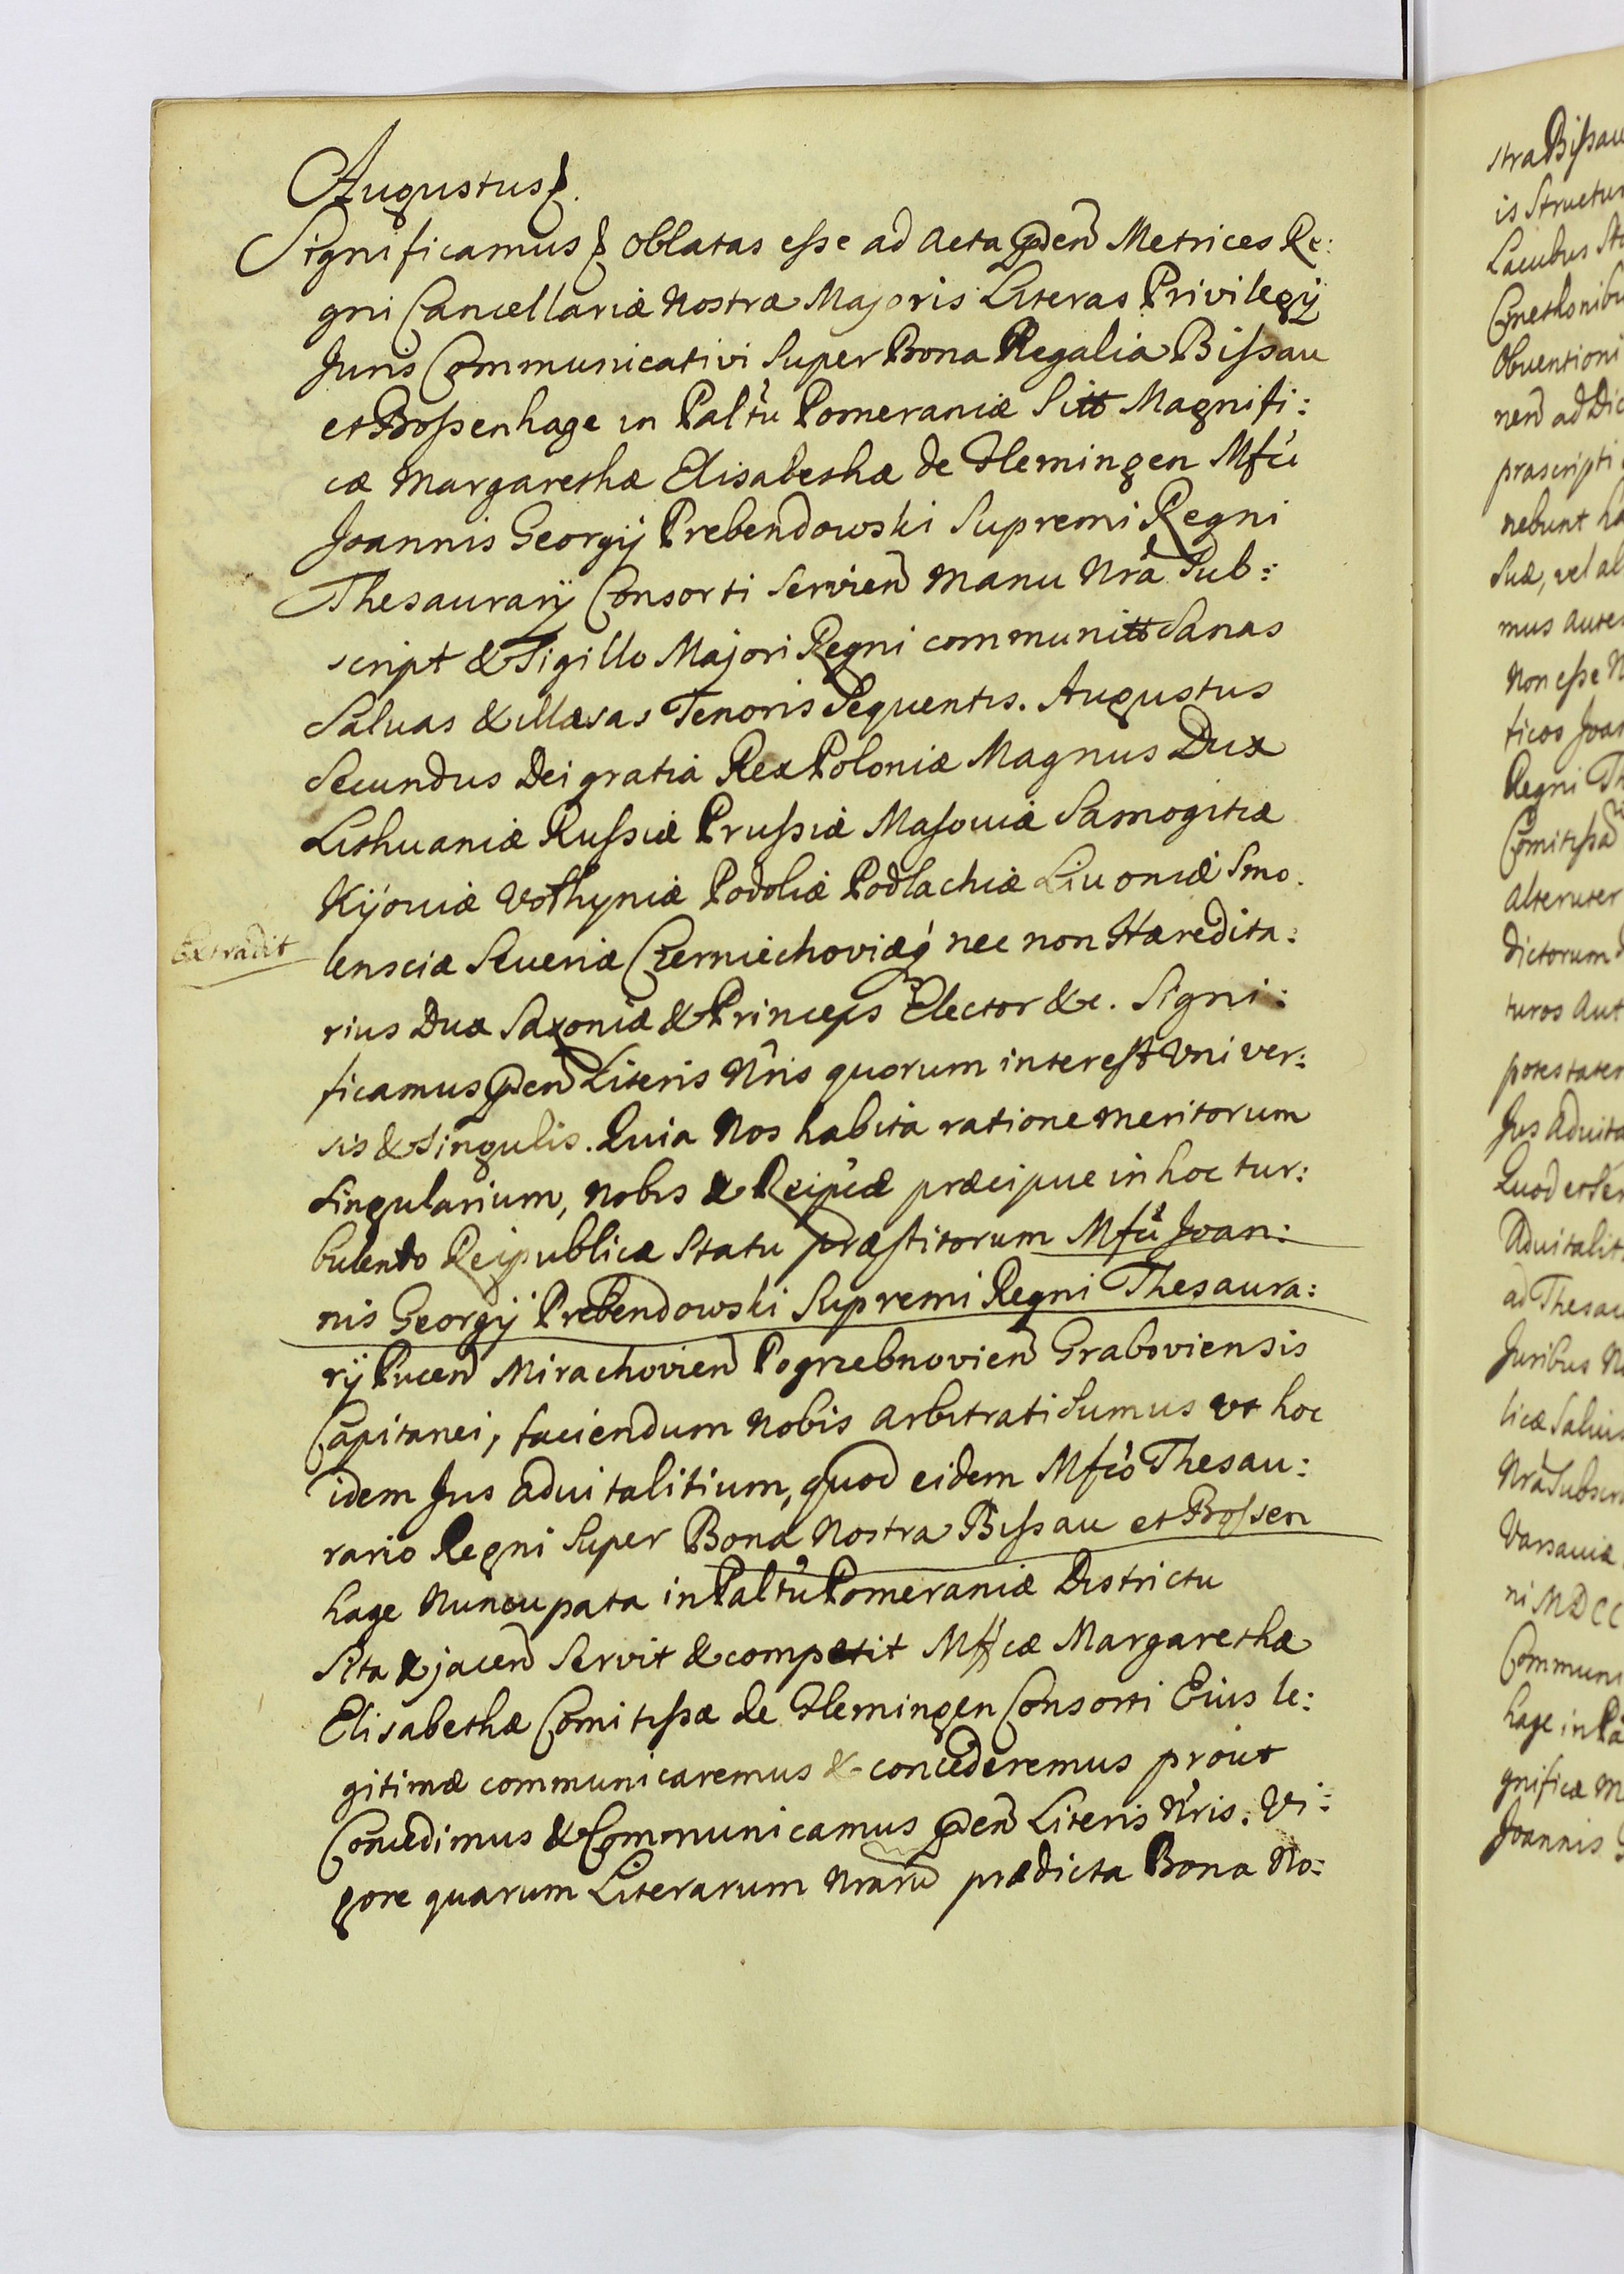 Augustus &.
Significamus & Oblatas esse ad Acta pñen Metrices Re:
gni Cancellariæ Nostræ Majoris Literas Privilegÿ
Juris Communicativi Super Bona Regalia Bissau
et Bossenhage in Paltũ Pomeraniæ Sitt Magnifi:
cæ Margarethæ Elisabethæ de Flemingen Mfci
Joannis Georgÿ Prebendowski Supremi Regni
Thesaurarÿ Consorti Servien Manu Nrã Sub:
script & Sigillo Majori Regni communitt Sanas
Saluas & illæsas Tenoris Sequentis. Augustus
Secundus Dei gratiâ Rex Poloniæ Magnus Dux
Lithuaniæ Russiæ Prussiæ Masouiæ Samogitiæ
Kijouiæ Volhyniæ Podoliæ Podlachiæ Liuoniæ Smo.
lensciæ Seueriæ Czerniechoviæq́ nec non Hæredita:
rius Dux Saxoniæ & Princeps Elector &c. Signi:
ficamus pñen Literis Nris quorum interest Vniver:
sis & Singulis. Quia Nos habitâ ratione meritorum
Singularium, Nobis & Reipcæ præcipue in hoc tur:
bulento Reipublicæ Statu præstitorum Mfci Joan:
nis Georgÿ Prebendowski Supremi Regni Thesaura:
rÿ Pucen Mirachovien Pogrzebnovien Graboviensis
Capitanei, faciendum Nobis arbitrati Sumus vt hoc
idem Jus aduitalitium, quod eidem Mfco Thesau:
rario Regni Super Bona Nostra Bissau et Bossen
hage Nuncupata in Paltũ Pomeraniæ Districtu
Sita & jacen Servit & competit Mfcæ Margarethæ
Elisabethæ Comitissæ de Flemingen Consorti Eius le:
gitimæ communicaremus & concederemus prout
Concedimus & Communicamus pñen Literis Nris. Vi:
gore quarum Literarum Nrarũ prædicta Bona No:
Extradit
stra Bissau
is Structu
Lacubus
Cmethonibu
Obuentioni
nen ad Dic
præscripti
nebunt ha
Suæ, vel al
mus autem
Non esse N
ficos Joan
Regni Th
Comitissã
Alteruter
Dictorum
turos aut
potestatem
Jus aduita
Quod et Ser
Aduitalit
ad Thesau
Juribus N
licæ Saluis
Nrã Subscr
Varsauiæ
ni MDCC
Communi
hage in Pa
gnificæ M
Joannis G